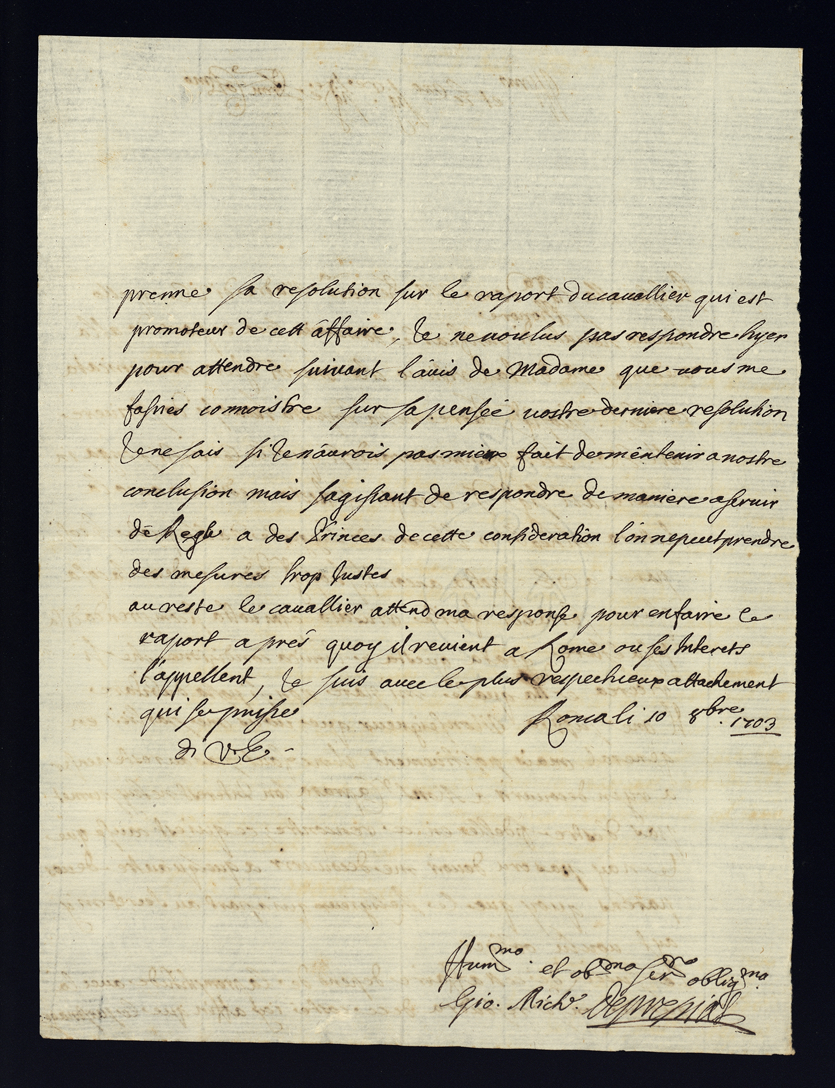 prenne sa resolution sur le raport du cavallier qui est
promoteur de cett âffaire, Je ne voulus pas respondre hyer
pour attendre suivant l'âvis de Madame que vous me
fassies connoistre sur sa pensée vostre derniere resolution
Je ne sais si Je n'âurois pas mieux fait de m'êntenir a nostre
conclusion mais sagissant de respondre de maniere a servir
de Regle a des Princes de cette consideration l'on ne peut prendre
des mesures trop Justes
au reste le cavallier attend ma response pour en faire le
raport aprés quoy il revient a Rome ou ses Interets
l'appellent, Je suis avec le plus respectueux attachement
qui se puisse Roma li 10 8bre. 1703
di V. E.
Hum.mo et ob.mo ser.re obligmo.
Gio. Mich.